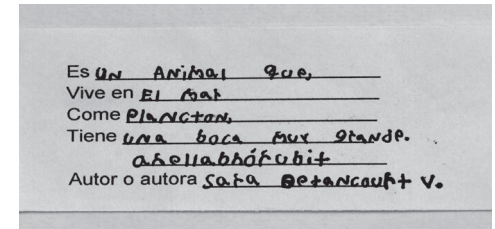 Es un Animal que,
Vive en El mar
Come Plancton,
Tiene una boca muy grande.
Autor o autora Sara Betancourt V.